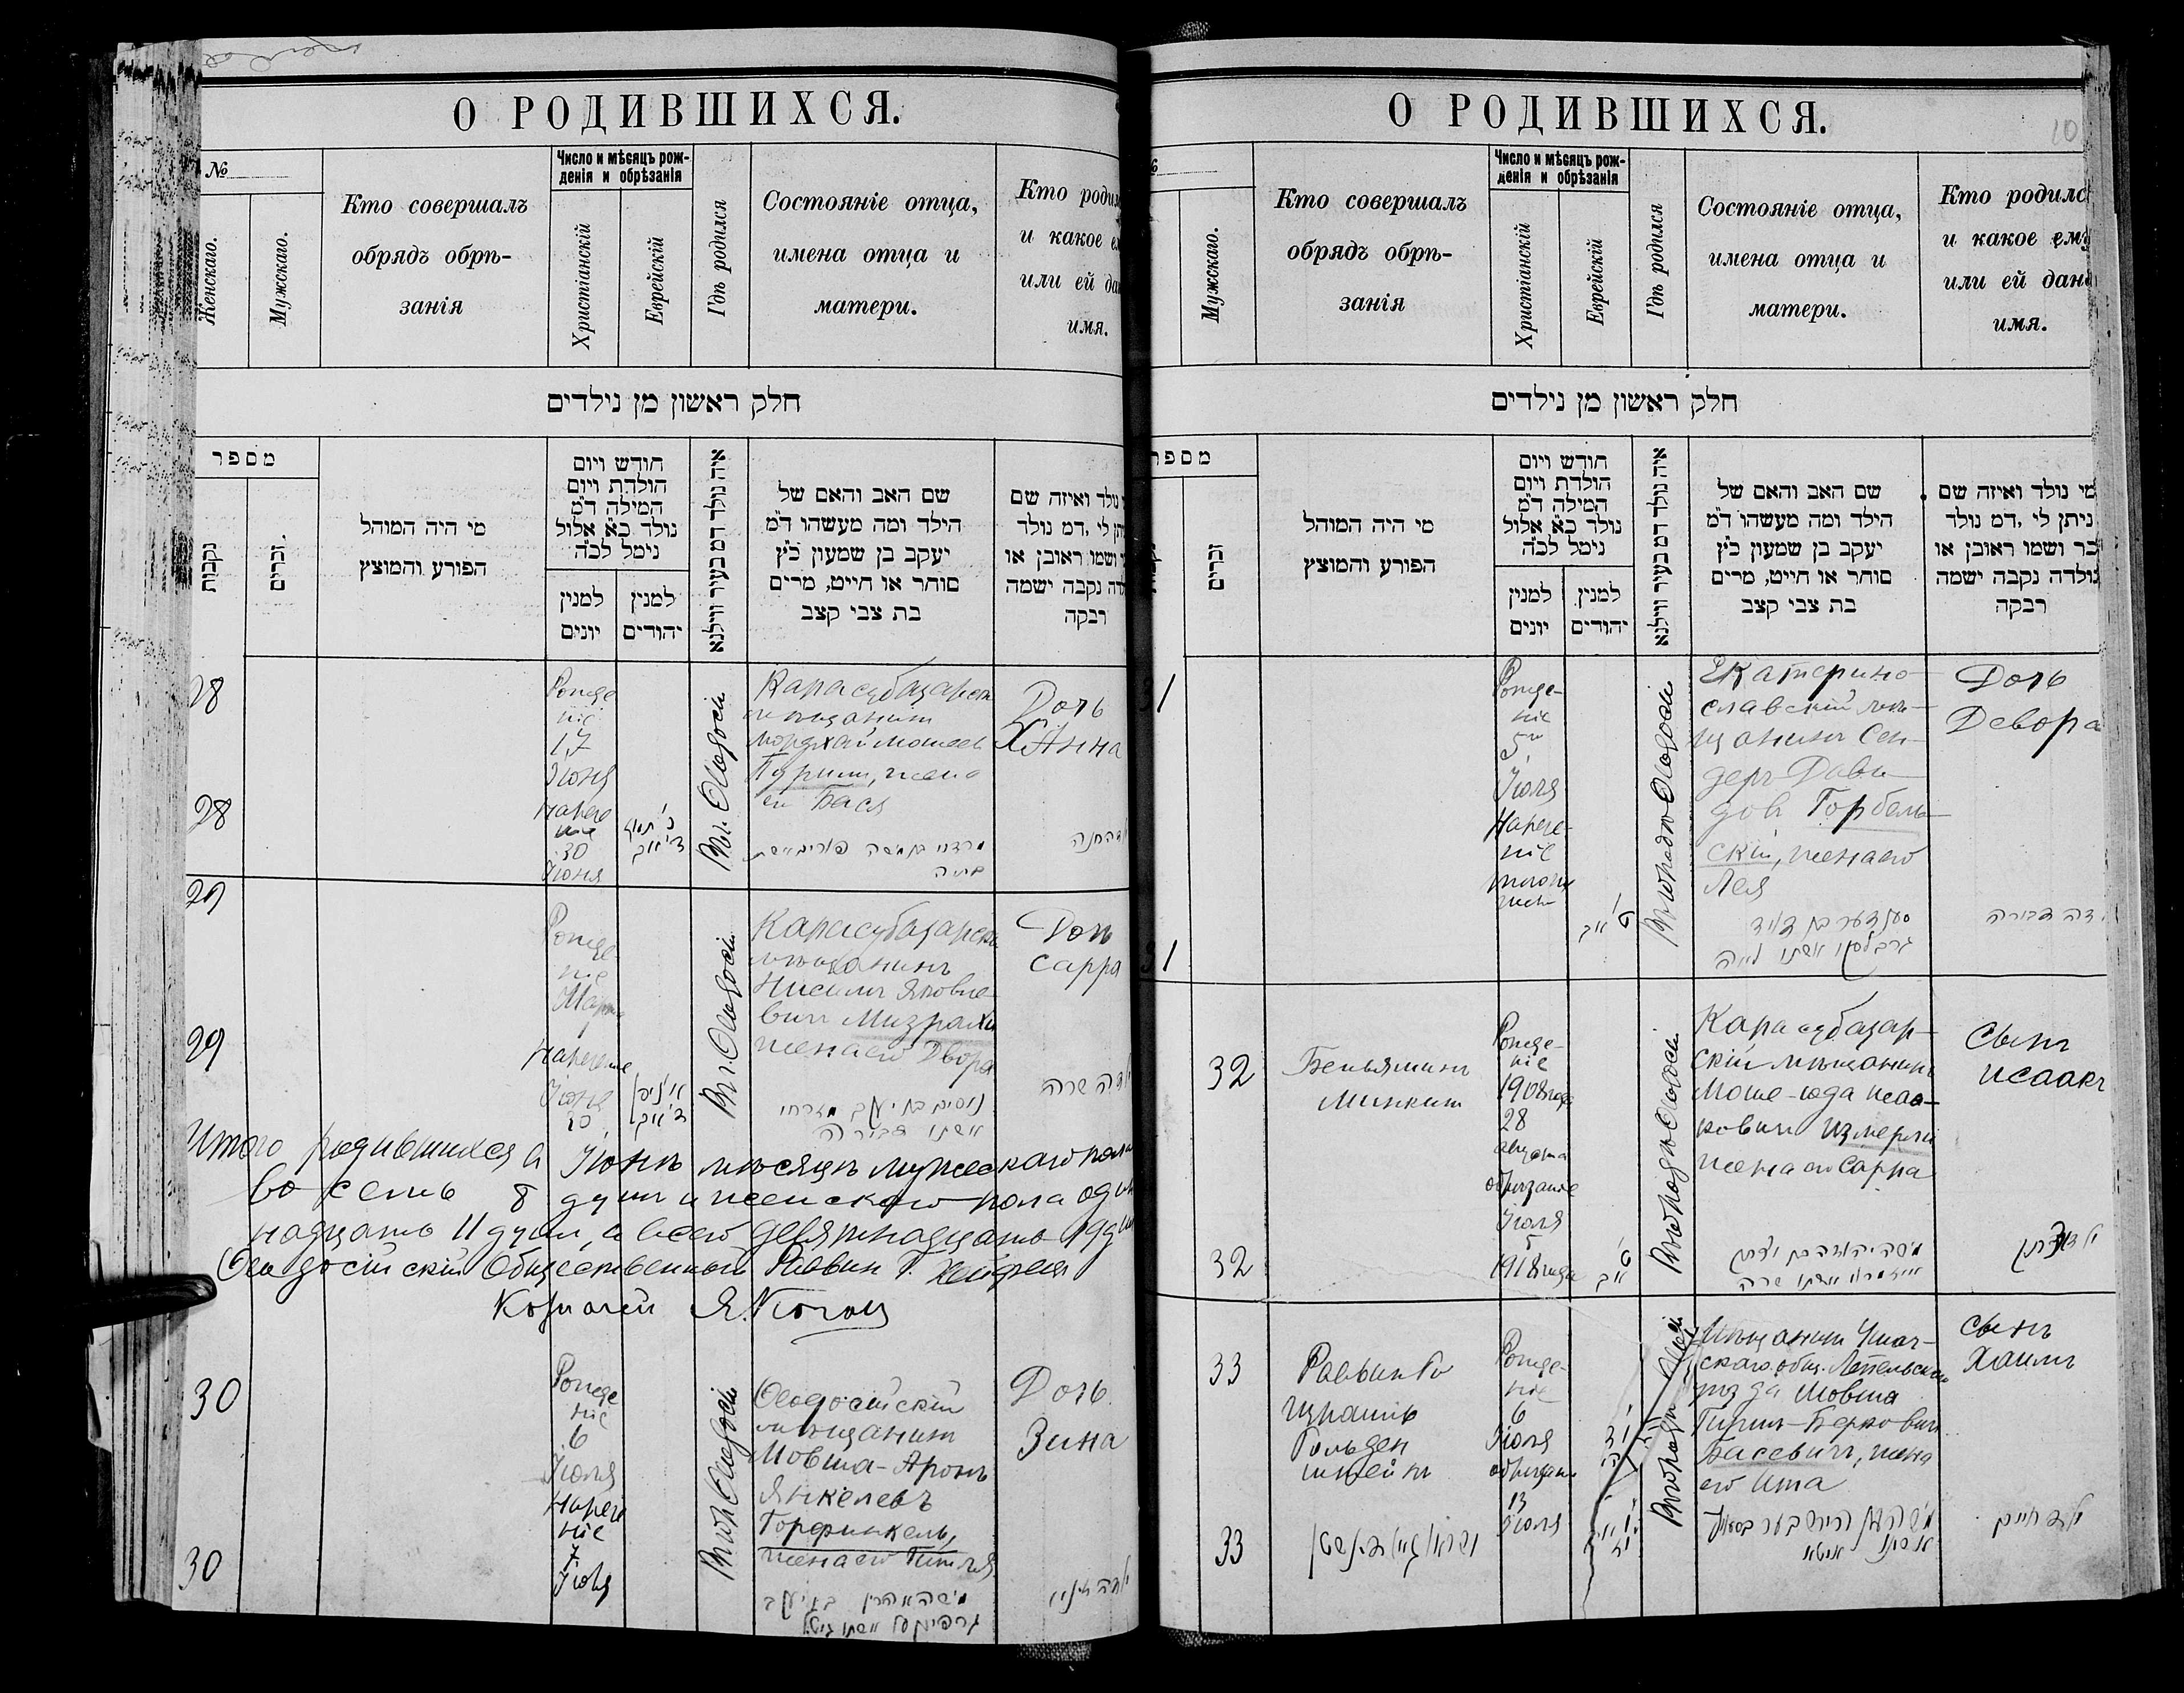 О РОДИВШИХСЯ.
№
Женскаго.
Мужскаго.
Кто совершалъ
обрядъ обрѣ-
занія
Число и мѣсяцъ рож-
денія и обрѣзанія
Христіанскій
Еврейскій
Гдѣ родился
Состояніе отца,
имена отца и
матери.
Кто родил
и какое е
или ей да
имя.
חלק ראשון מן נילדים
מספר
נקבות
זכרים.
מי היה המוהל
הפורע והמוצץ
חודש ויום
הולדת ויום
המילה ד״מ
נולד כ״א אלול
נימל לכ״ה
למנין
יונים
למנין
יהודים
איה נולד דמ בעיר ווילנא
שם האב והאם של
הילד ומה מעשהו ד״מ
יעקב בן שמעון כ״ץ
סוחר או חייט, מרים
בת צבי קצב
נולד ואיזה שם
לי ,דמ נולד
ושמו ראובן או
נקבה ישמה
רבקה
28
28
Рожде
ніе
17
Іюня
Нарече
ніе
30
Іюня
ד׳ אב
Въ г. Ѳеодосіи
Карасубазарск
мѣщанинъ
Мордхай Мошев
Пуриш, жена
его Бася
Дочь
Ханна
29
29
Рожде
ніе
Марта
Наречение
Іюня
30
ד׳ אב
Въ г. Ѳеодосіи
Карасубазарск
мѣщанинъ
Нисимъ Яковле
вичъ Мизрахи
жена его Двора
נסים בן יעקב מזרחי
אשתו דבורה
Дочь
Сарра
ילדה שרה
Итого родившихся въ Іюнѣ мѣсяцѣ мужескаго пола
восемь 8 душъ и женскаго пола один
надцать 11 душъ, а всего девятнадцать 19 душ
Ѳеодосійскій Общественный Раввин
30
30
Рожде
ніе
6
Іюля
Нарече
ніе
7
Іюля
Въ гор. Ѳеодосіи
Ѳеодосійскій
мѣщанинъ
Мовша-Аронъ
Янкелевъ
Горфинкель,
жена его Гитля
משה אהרן בן יעקב
גרפינקל אשתו גיטל
Дочь
Зина
О РОДИВШИХСЯ.
10
Мужскаго.
Кто совершалъ
обрядъ обрѣ-
занія
Число и мѣсяцъ рож-
денія и обрѣзанія
Христіанскій
Еврейскій
Гдѣ родился
Состояніе отца,
имена отца и
матери.
Кто родилс
и какое ему
или ей дан
имя.
חלק ראשון מן נילדים
מספר
זכרים
מי היה המוהל
הפורע והמוצץ
חודש ויום
הולדת ויום
המילה ד״מ
נולד כ״א אלול
נימל לכ״ה
למנין
יונים
למנין
יהודים
איה נולד דמ בעיר ווילנא
שם האב והאם של
הילד ומה מעשהו ד״מ
יעקב בן שמעון כ״ץ
סוחר או חייט, מרים
בת צבי קצב
מי נולד ואיזה שם
ניתן לי ,דמ נולד
זכר ושמו ראובן או
נולדה נקבה ישמה
רבקה
31
31
Рожде-
ніе
5го
Іюля
Нарече-
ніе
ט׳ אב
Въ городѣ Ѳеодосіи
Екатерино-
славскій мѣ-
щанинъ Сен-
деръ Дави-
довъ Горбель-
скій, жена его
Лея
סענדער בן דויד
גרבלסקי אשתו לאה
Дочь
Девора
ילדה דבורה
32
32
Беньяминъ
Минкин
Рожде-
ніе
1908 года
28
августа
обрѣзаніе
Іюля
5
1918 года
ט׳ אב
Въ городѣ Ѳеодосіи
Карасубазар-
скій мѣщанинъ
Моше-Юда Исаа-
ковичъ Измерли
жена его Сарра
משה יהודה בן יצחק
איזמרלי אשתו שרה
Сынъ
Исаакъ
ילד יצחק
33
33
Раввинъ
Израиль
Гольден
штейнъ
ישראל גאלדנשטין
Рожде-
ніе
6
Іюля
обрѣзаніе
13
Іюля
Въ городѣ Ѳеодосіи
Мѣщанинъ Ушач-
скаго общ. Лепельскаго
уѣзда Мовша
Гиршъ-Берковичъ
Басевичъ, жена
его Ита
Сынъ
Хаимъ
ילד חיים